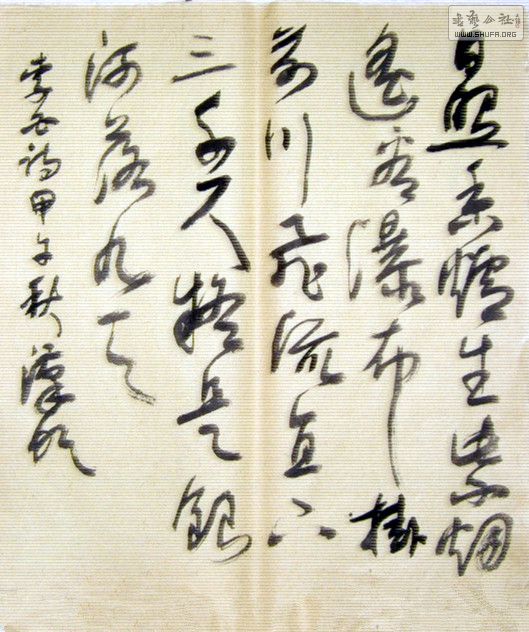 日照香爐生紫烟
遙看瀑布掛
前川飛流直下
三千尺疑是銀
河落九天
李白詩甲午秋
書法公社
WWW.SHUFA.ORG